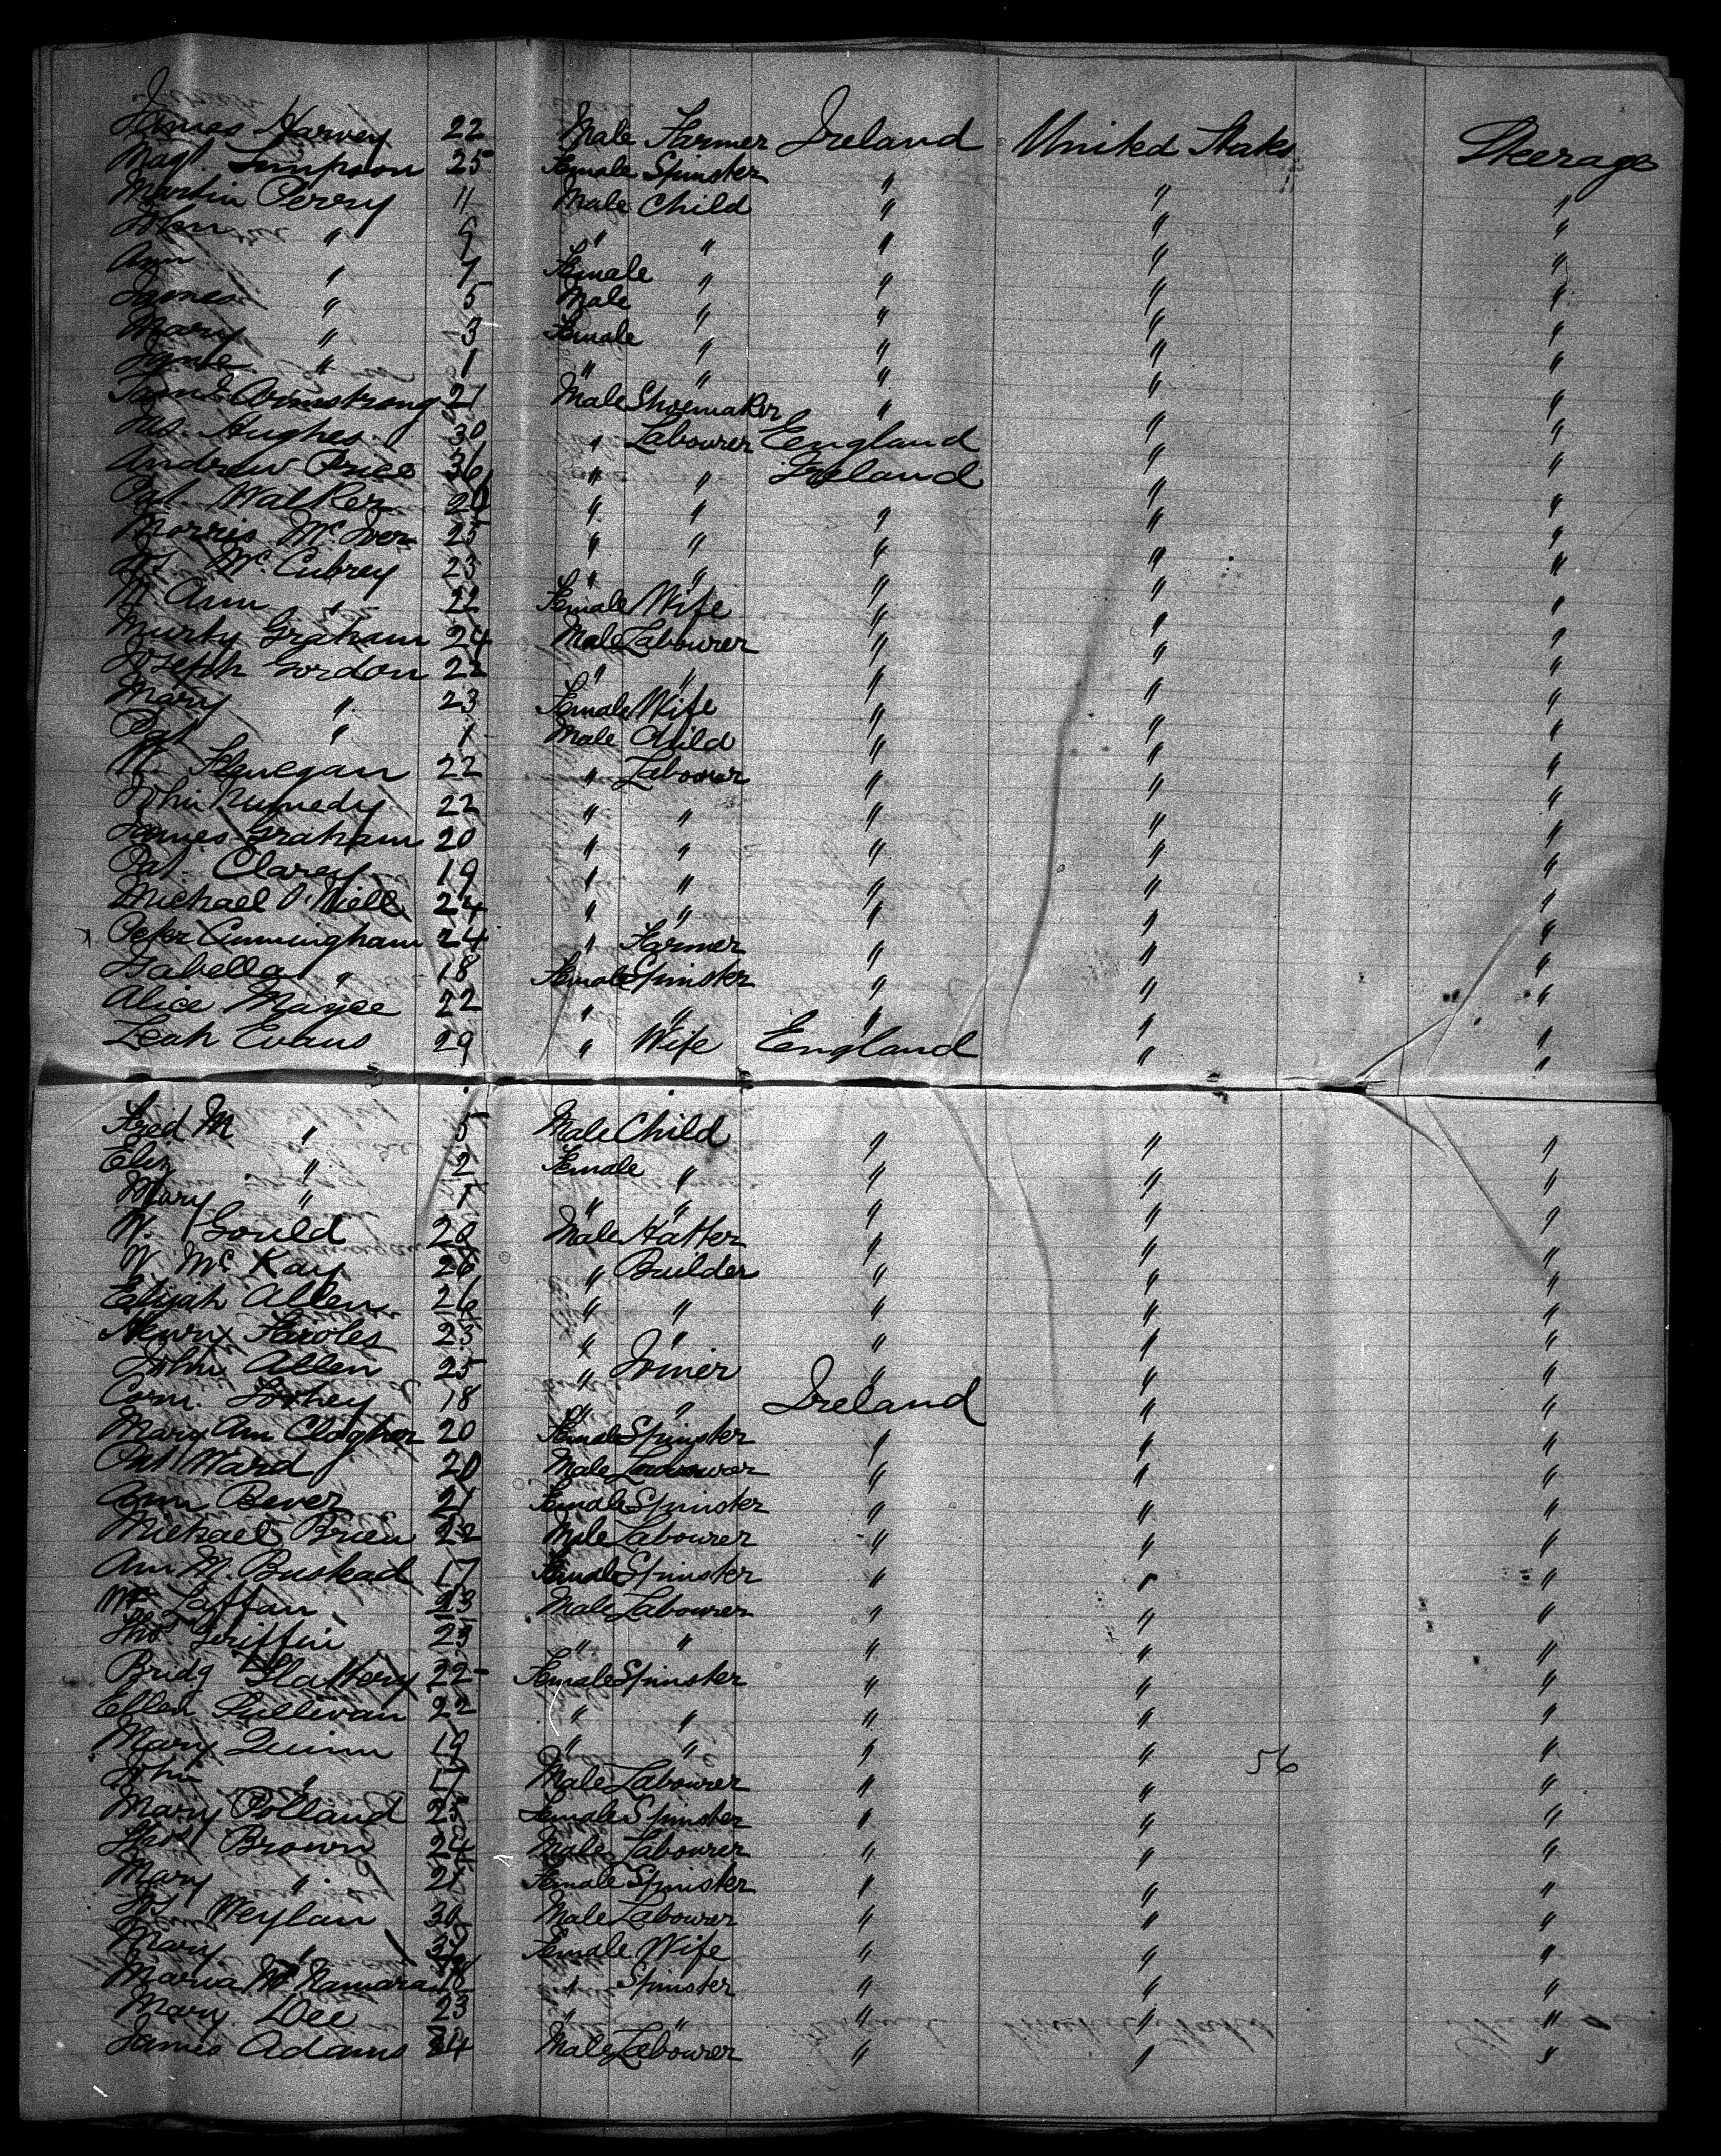 James Harvey 22 Male Farmer Ireland United States Steerage
Magt. Simpson 25 Female Spinster " " "
Martin Perry 11 Male Child " " "
John " 9 " " " " "
Ann " 7 Female " " " "
James " 5 Male " " " "
Mary " 3 Female " " " "
Jane " 1 " " " " "
Saml Armstrong 21 Male Shoemaker " " "
Jas. Hughes 30 " Labourer England " "
Andrew Price 36 " " Ireland " "
Pat. Walker 20 " " " " "
Morris McIver 25 " " " " "
McCubrey 23 " " " " "
M. Ann " 22 Female Wife " " "
Murty Graham 24 Male Labourer " " "
Joseph Gordon 22 " " " " "
Mary " 23 Female Wife " " "
Pat " 1 Male Child " " "
Flanegan 22 " Labourer " " "
John Kennedy 22 " " " " "
James Graham 20 " " " " "
Pat. Clarey 19 " " " " "
Michael O'Niell 24 " " " " "
Peter Cunningham 24 " Farmer " " "
Isabella " 18 Female Spinster " " "
Alice Magee 22 " " " " "
Leah Evans 29 " Wife England " "
Fred M " 5 Male Child " " "
Eliz " 2 Female " " " "
Mary " 1 " " " " "
W. Gould 20 Male Hatter " " "
W McKay 26 " Builder " " "
Elijah Allen 26 " " " " "
Henry 23 " " " " "
John Allen 25 " Joiner " " "
Corn. 18 " " Ireland " "
Mary Ann Clogher 20 Female Spinster " " "
Pat Ward 20 Male Labourer " " "
Ann Bever 21 Female Spinster " " "
Michael Brien 22 Male Labourer " " "
Ann M. Bushead 17 Female Spinster " " "
Laffan 23 Male Labourer " " "
Thos Griffin 23 " " " " "
Bridg Slattery 22 Female Spinster " " "
Ellen Sullivan 22 " " " " "
Mary Quinn 19 " " " " "
John " 17 Male Labourer " 56 " "
Mary Polland 25 Female Spinster " " "
Thos Brown 24 Male Labourer " " "
Mary " 21 Female Spinster " " "
Weylan 30 Male Labourer " " "
Mary " Female Wife " " "
Maria McNamara 18 " Spinster " " "
Mary Dee 23 " " " " "
James Adams 24 Male Labourer " " "